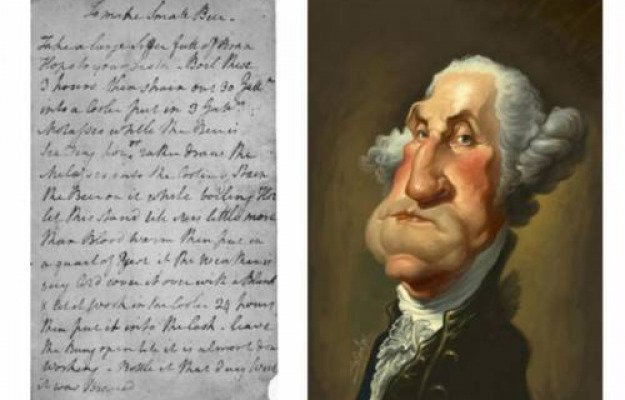 To make Small Beer.
Take a large Siffer full of Bran
Hops to your Taste - Boil these
3 hours then strain out 30 Gall
into a Cooler put in 3 Gall
Molasses while the Beer is
Scalding hot or rather drain the
Molasses into the Cooler & Strain
the Beer on it while boiling Hot
let this stand till it is little more
than Blood warm then put in
a quart of Yest if the Weather is
very Cold cover it over with a Blank
& let it work in the Cooler 24 hours
then put it into the Cask - leave
the Bung open till it is almost done
working - Bottle it that day Week
it was Brewed